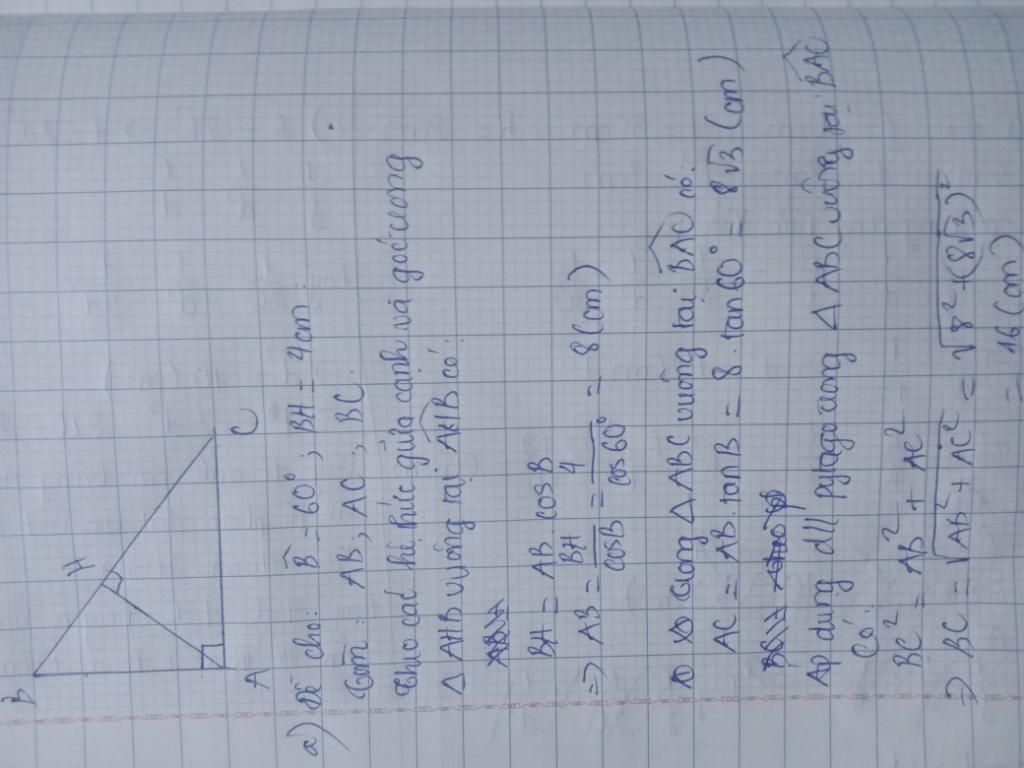 B
H
A
C
a) Đề cho: B̂ = 60°; BH = 4cm.
Tìm: AB; AC; BC.
Theo các hệ thức giữa cạnh và góc trong
△ AHB vuông tại AHB có:
BH = AB. cosB
=> AB = BH/cosB = 4/cos60° = 8 (cm)
Xo trong △ ABC vuông tại BAC có:
AC = AB. tanB = 8. tan60° = 8√3 (cm)
Áp dụng đll pytago trong △ ABC vuông tại BAC
Có:
BC² = AB² + AC²
=> BC = √AB² + AC² = √8² + (8√3)²
= 16 (cm)